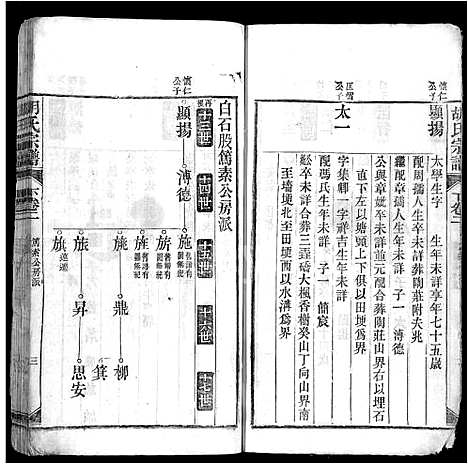 胡氏宗譜
下卷二
懷仁公子
顯揚
太學生字　生年未詳享年七十五歲
配周孺人生卒未詳葬陶莊附夫兆
繼配章孺人生年未詳　子一　溥德
公與章孺卒未詳並元配合葬陶莊山界右以石埋
直下左以塘頭上下俱以田埂爲界
公子
太一
字集卿一字祥吉生年未詳
配馮氏生年未詳　子一　儐宸
公卒未詳合葬三霊磡大楓香樹癸山丁向山界南
至墻埂北至田埂西以水溝爲界
白石股篤素公房派
十三世
十四世
十五世
十六世
十七世
懷仁公子
顯揚
溥德
施
旌
旒
旅
旗
遠遷
鼎
昇
柳
箕
思安
胡氏宗譜
下卷二
篤素公房派
三